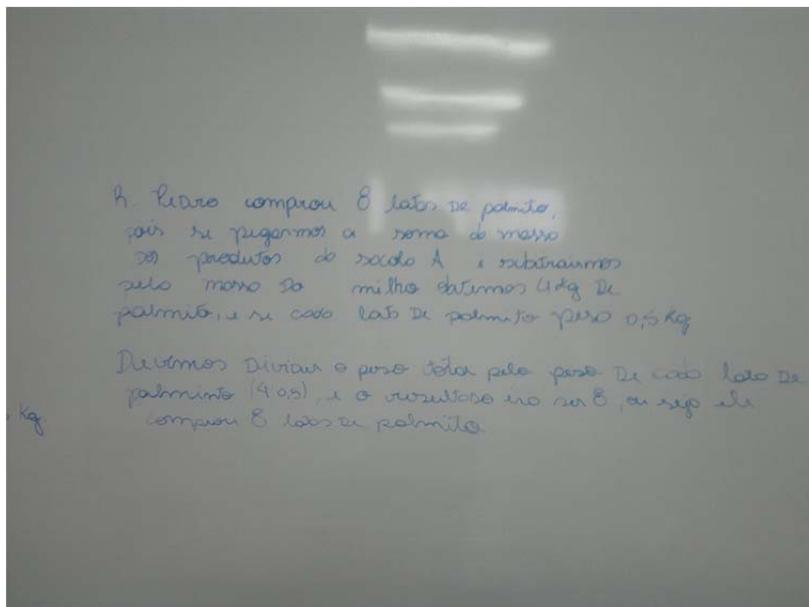 R. Pedro comprou 8 latas de palmito,
pois se pegarmos a soma da massa
dos produtos da sacola A e subtrairmos
pela massa do milho obtemos 4kg de
palmito, e se cada lata de palmito pesa 0,5 kg
Devemos dividir o peso total pelo peso de cada lata de
palminto (4 0,5), e o resultado irá ser 8, ou seja ele
comprou 8 latas de palmito
Kg.